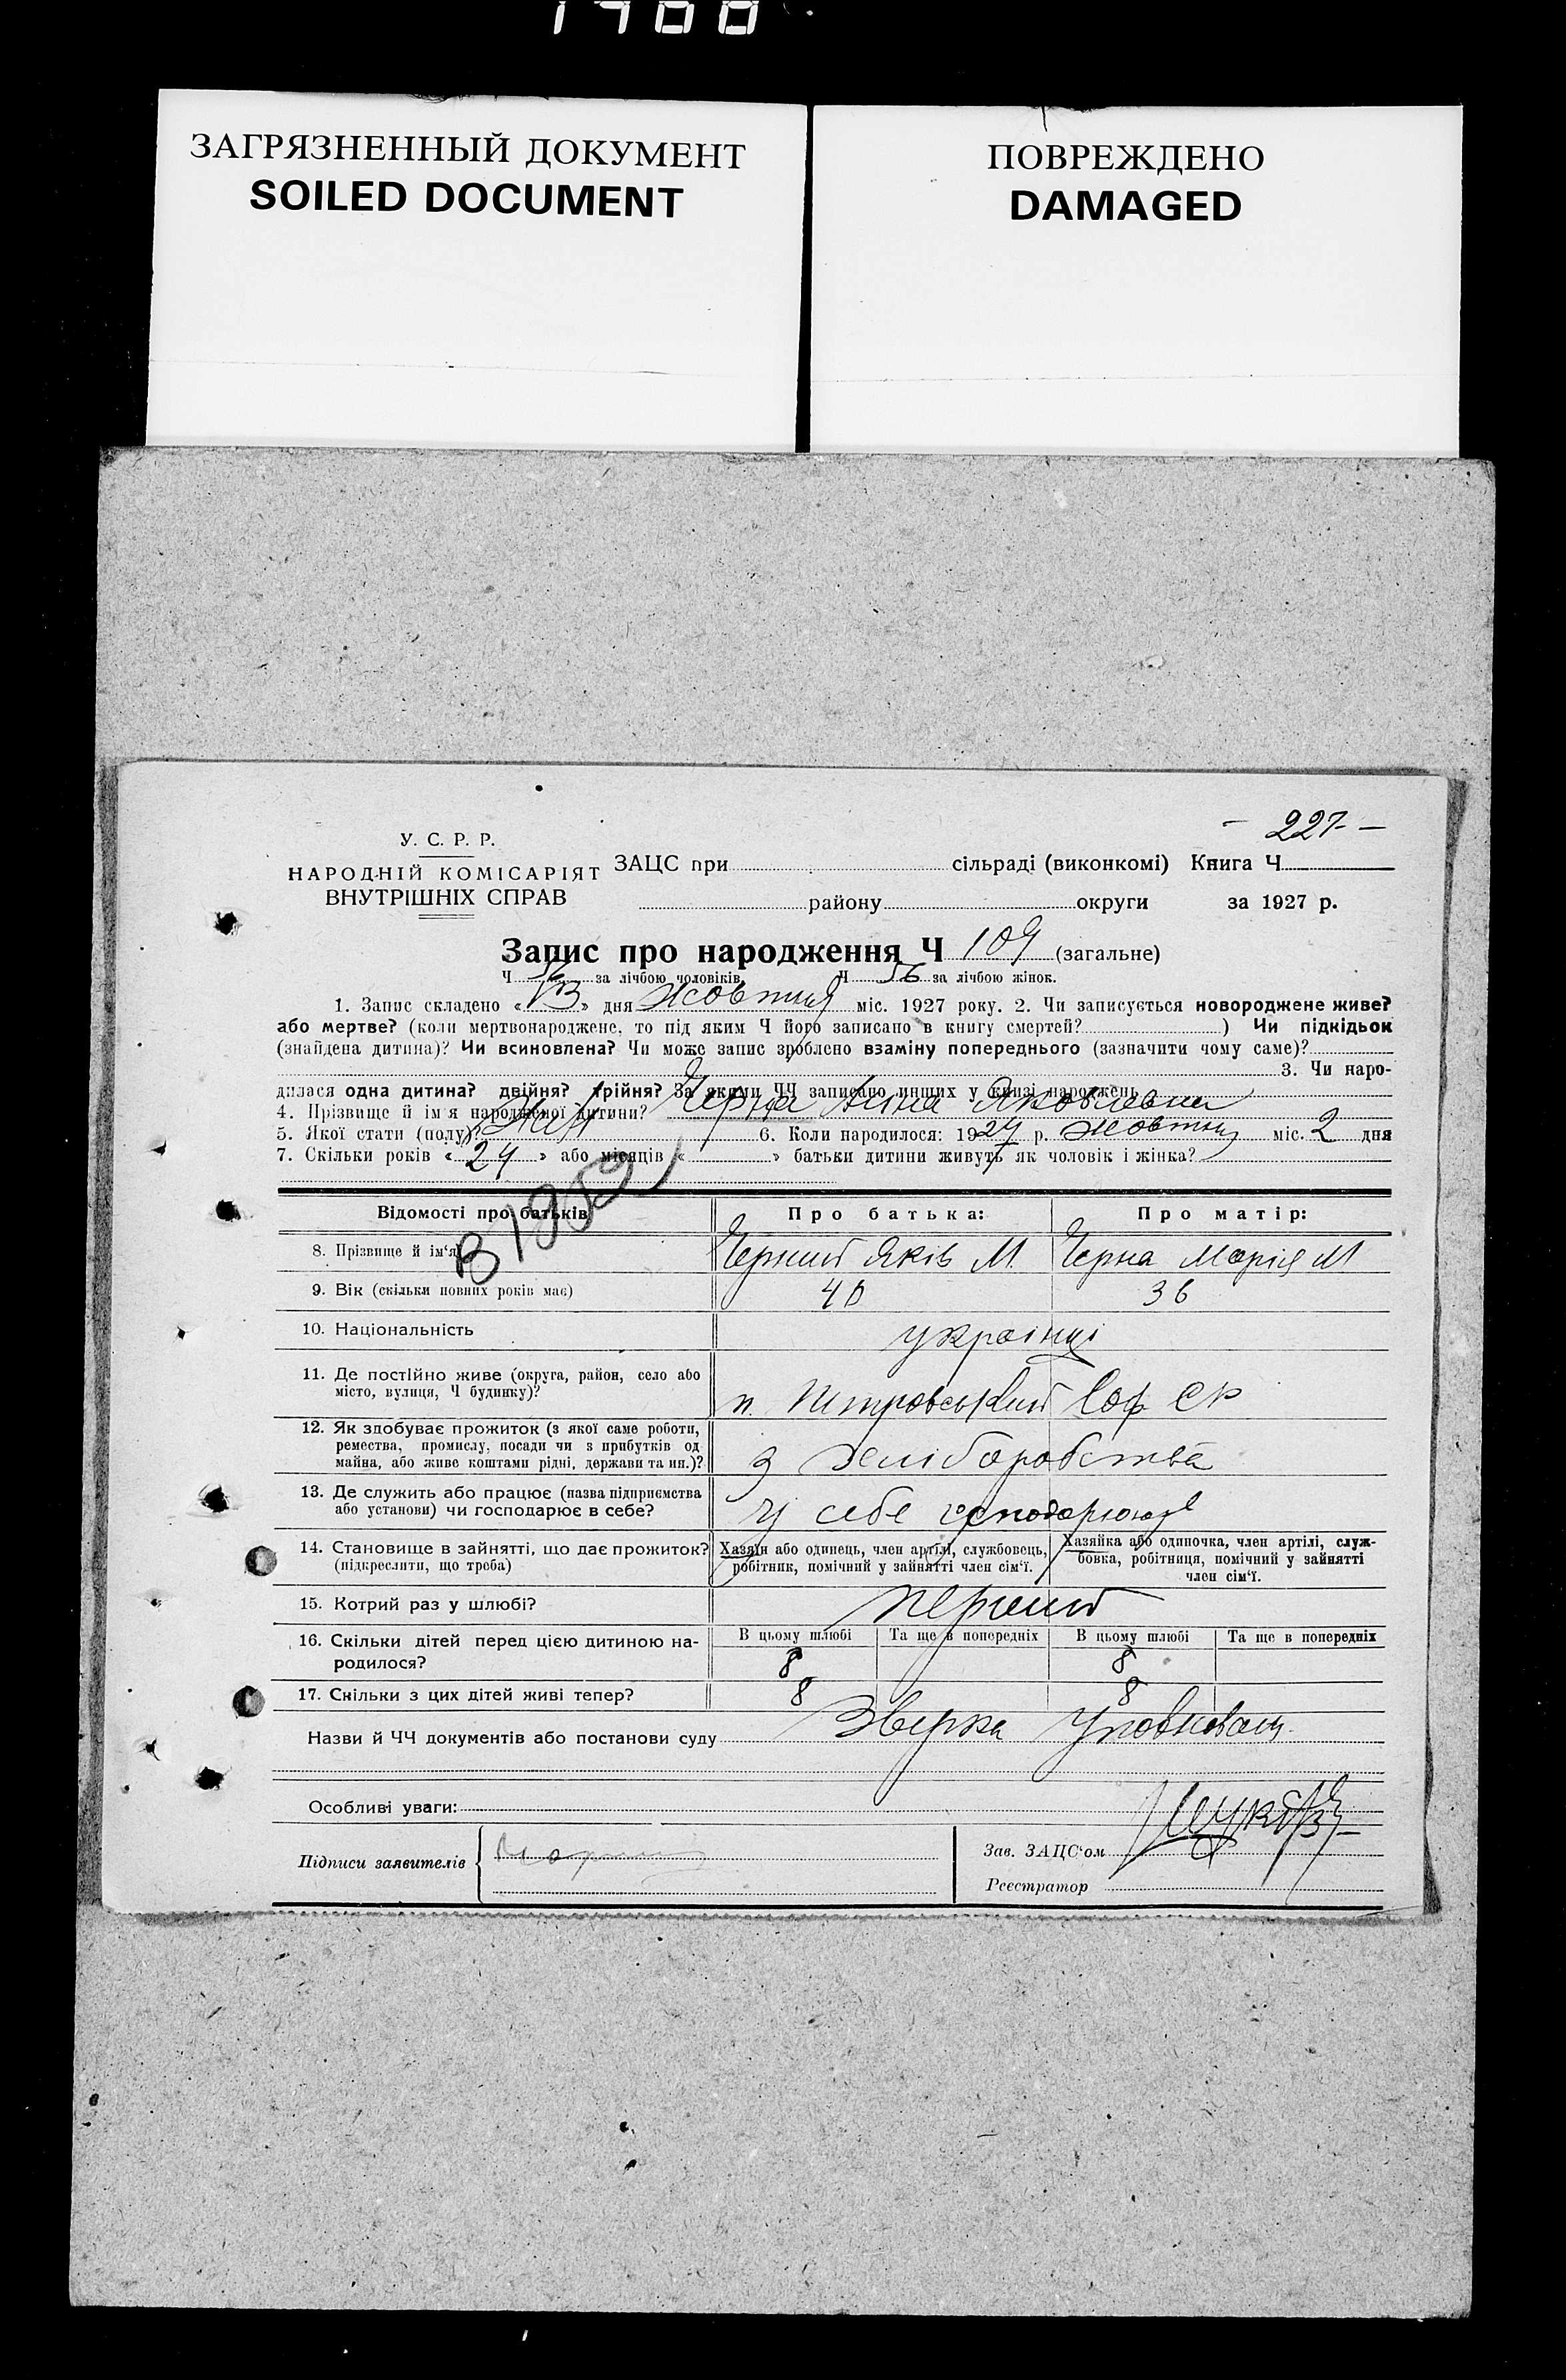 1788
ЗАГРЯЗНЕННЫЙ ДОКУМЕНТ
SOILED DOCUMENT
ПОВРЕЖДЕНО
DAMAGED
– 227 –
У. С. Р. Р.
НАРОДНІЙ КОМІСАРІЯТ
ВНУТРІШНІХ СПРАВ
ЗАЦС при сільраді (виконкомі) Книга Ч
району округи за 1927 р.
Запис про народження Ч 109 (загальне)
Ч за лічбою чоловіків, Ч 56 за лічбою жінок.
1. Запис складено « 13 » дня Жовтня міс. 1927 року. 2. Чи записується новороджене живе?
або мертве? (коли мертвонароджене, то під яким Ч його записано в книгу смертей? ) Чи підкідьок
(знайдена дитина)? Чи всиновлена? Чи може запис зроблено взаміну попереднього (зазначити чому саме)?
3. Чи наро-
дилася одна дитина? двійня? трійня? За якими ЧЧ записано инших у книзі народжень
4. Прізвище й ім'я народженої дитини? Черна Анна Яковлевна
5. Якої стати (полу)? Жін 6. Коли народилося: 1927 р. Жовтня міс. 2 дня
7. Скільки років « 24 » або місяців « » батьки дитини живуть як чоловік і жінка?
Відомості про батьків Про батька: Про матір:
8. Прізвище й ім'я Черний Яків М. Черна Марія М
9. Вік (скільки повних років має) 40 36
10. Національність українці
11. Де постійно живе (округа, район, село або
місто, вулиця, Ч будинку)? п. Петровський Соф СР
12. Як здобуває прожиток (з якої саме роботи,
ремества, промислу, посади чи з прибутків од
майна, або живе коштами рідні, держави та ин.)? з хліборобства
13. Де служить або працює (назва підприємства
або установи) чи господарює в себе? у себе господарює
14. Становище в зайнятті, що дає прожиток?
(підкреслити, що треба)
Хазяїн або одинець, член артілі, службовець,
робітник, помічний у зайнятті член сім'ї.
Хазяйка або одиночка, член артілі, служ-
бовка, робітниця, помічний у зайнятті
член сім'ї.
15. Котрий раз у шлюбі? перший
16. Скільки дітей перед цією дитиною на-
родилося?
В цьому шлюбі Та ще в попередніх В цьому шлюбі Та ще в попередніх
8 8
17. Скільки з цих дітей живі тепер? 8 8
Назви й ЧЧ документів або постанови суду
Особливі уваги:
Підписи заявителів
Зав. ЗАЦС'ом
Реєстратор